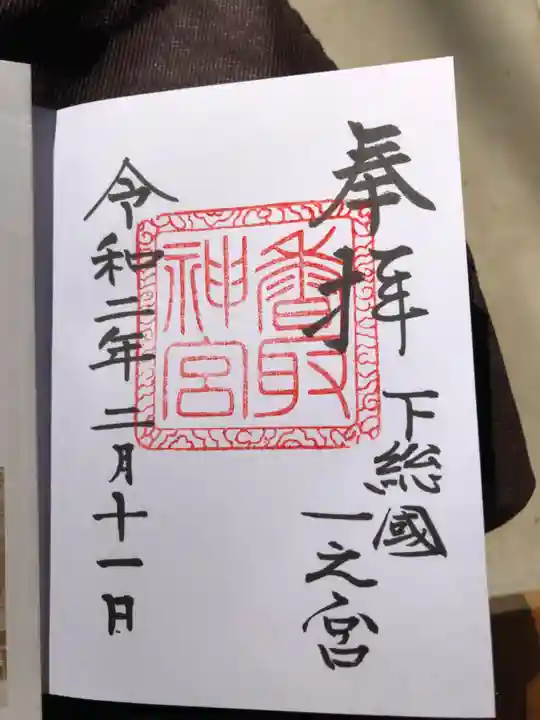 奉拝
下総國
一之宮
香取
神宮
令和二年二月十一日